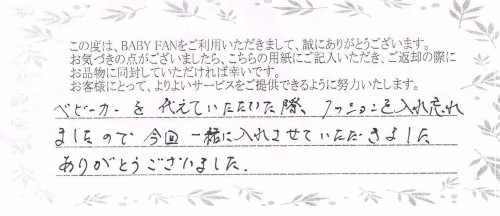 この度は、BABY FANをご利用いただきまして、誠にありがとうございます。
お気づきの点がございましたら、こちらの用紙にご記入いただき、ご返却の際に
お品物に同封していただければ幸いです。
お客様にとって、よりよいサービスをご提供できるように努力いたします。
ベビーカーを 代えていただいた際、クッションを入れ忘れ
ましたので 今回 一緒に入れさせていただきました
ありがとうございました.